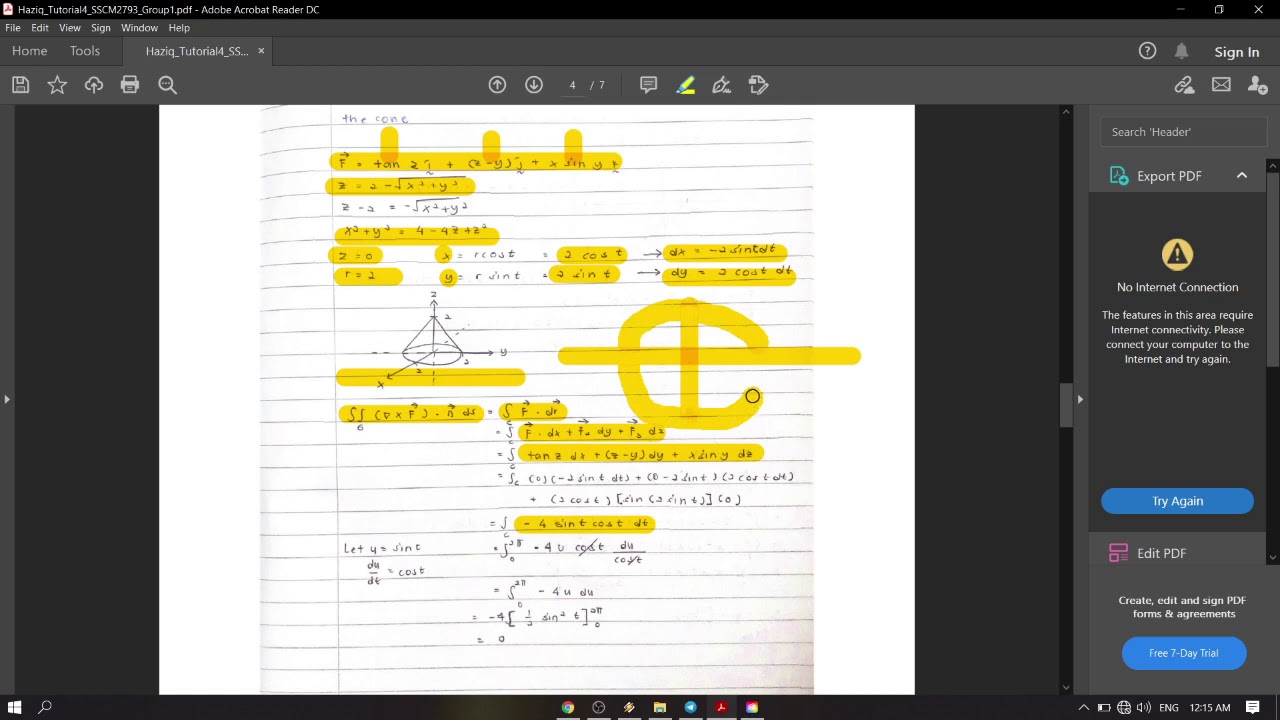 Haziq_Tutorial4_SSCM2793_Group1.pdf - Adobe Acrobat Reader DC
File Edit View Sign Window Help
Home Tools Haziq_Tutorial4_SS... × Sign In
4 / 7
the cone
F⃗ = tan z i + (z-y) j + x sin y k
z = 2 - √x²+y²
z - 2 = -√x²+y²
x²+y² = 4 - 4z + z²
z = 0 x = r cos t = 2 cos t → dx = -2 sin t dt
r = 2 y = r sin t = 2 sin t → dy = 2 cos t dt
z
2
y
2
2
x
∬ (∇ × F⃗) · n⃗ ds = ∫ F⃗ · dr⃗
= ∫c F⃗ · dx + F₂ dy + F₃ dz
= ∫c tan z dx + (z-y) dy + x sin y dz
= ∫c (0)(-2 sin t dt) + (0 - 2 sin t)(2 cos t dt)
+ (2 cos t) [sin (2 sin t)] (0)
= ∫c - 4 sin t cos t dt
Let u = sin t = ∫₀^2π - 4 u cos t du/cos t
du/dt = cos t
= ∫₀^2π - 4 u du
= -4 [ 1/2 sin² t ]₀^2π
= 0
Search 'Header'
Export PDF
No Internet Connection
The features in this area require
Internet connectivity. Please
connect your computer to the
Internet and try again.
Try Again
Edit PDF
Create, edit and sign PDF
forms & agreements
Free 7-Day Trial
ENG 12:15 AM